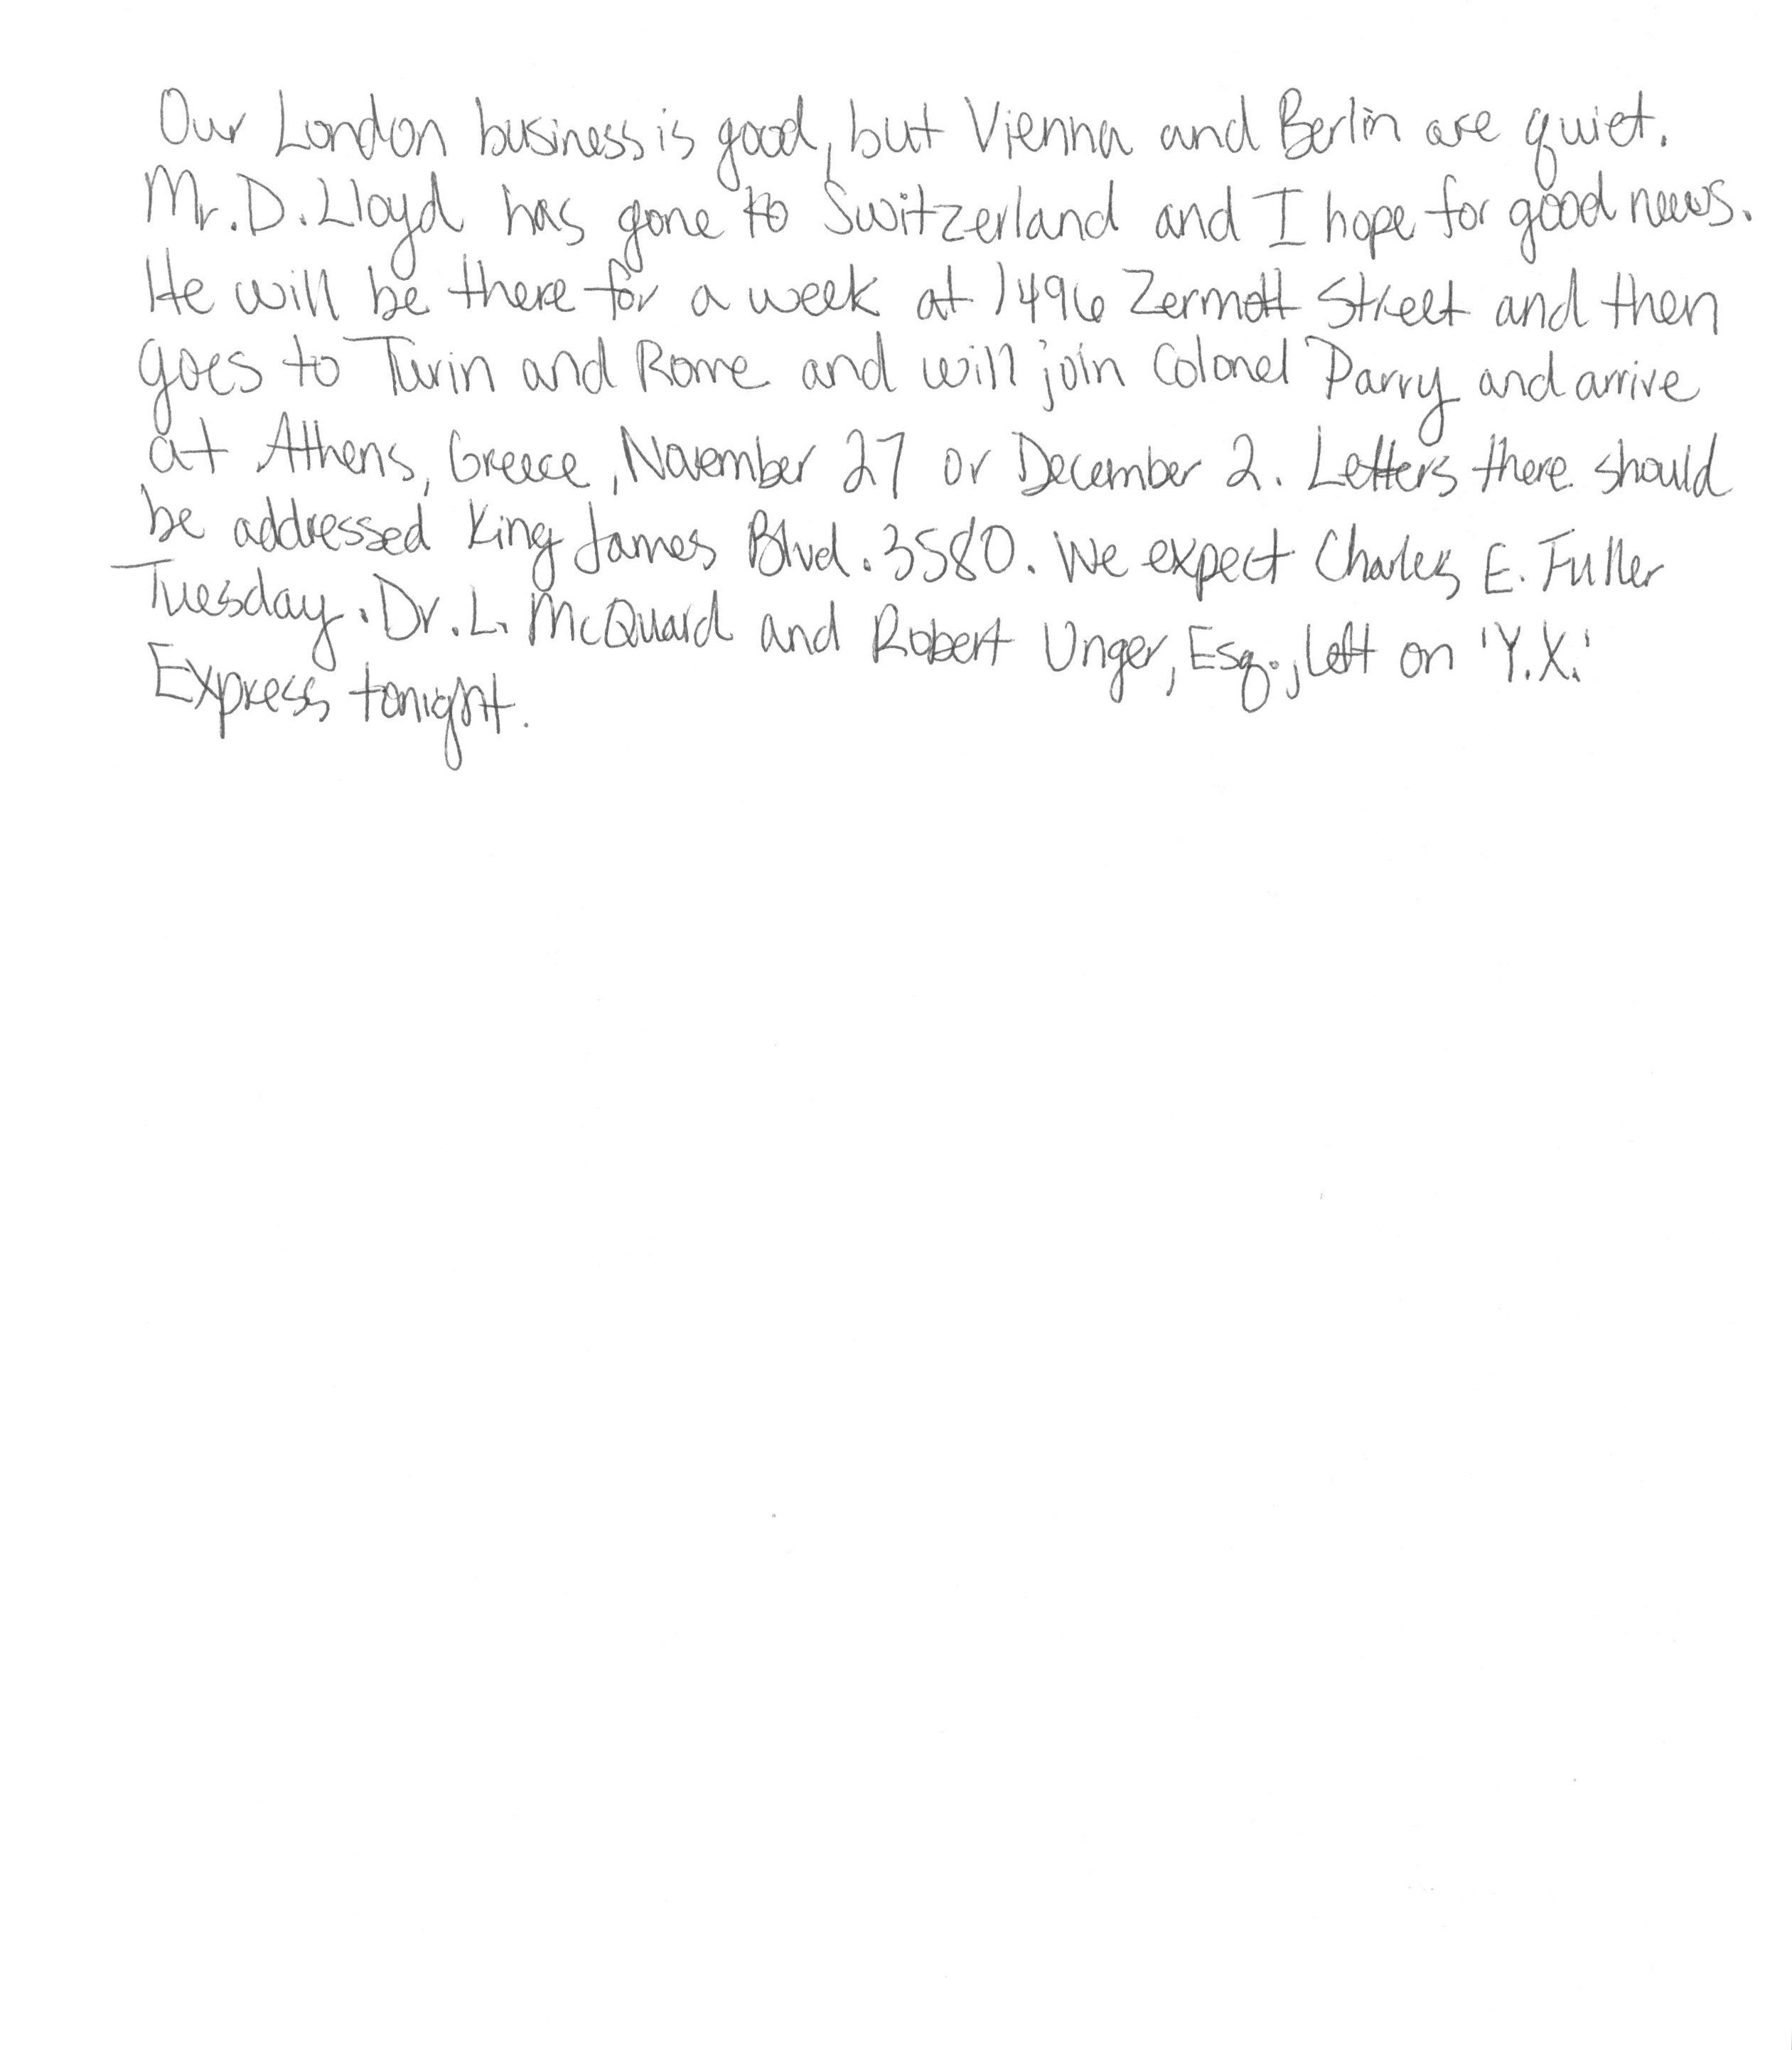 Our London business is good, but Vienna and Berlin are quiet.
Mr. D. Lloyd has gone to Switzerland and I hope for good news.
He will be there for a week at 1496 Zermott Street and then
goes to Turin and Rome and will join Colonel Parry and arrive
at Athens, Greece, November 27 or December 2. Letters there should
be addressed King James Blvd. 3580. We expect Charles E. Fuller
Tuesday. Dr. L. McQuaid and Robert Unger, Esq., left on 'Y.X.'
Express tonight.